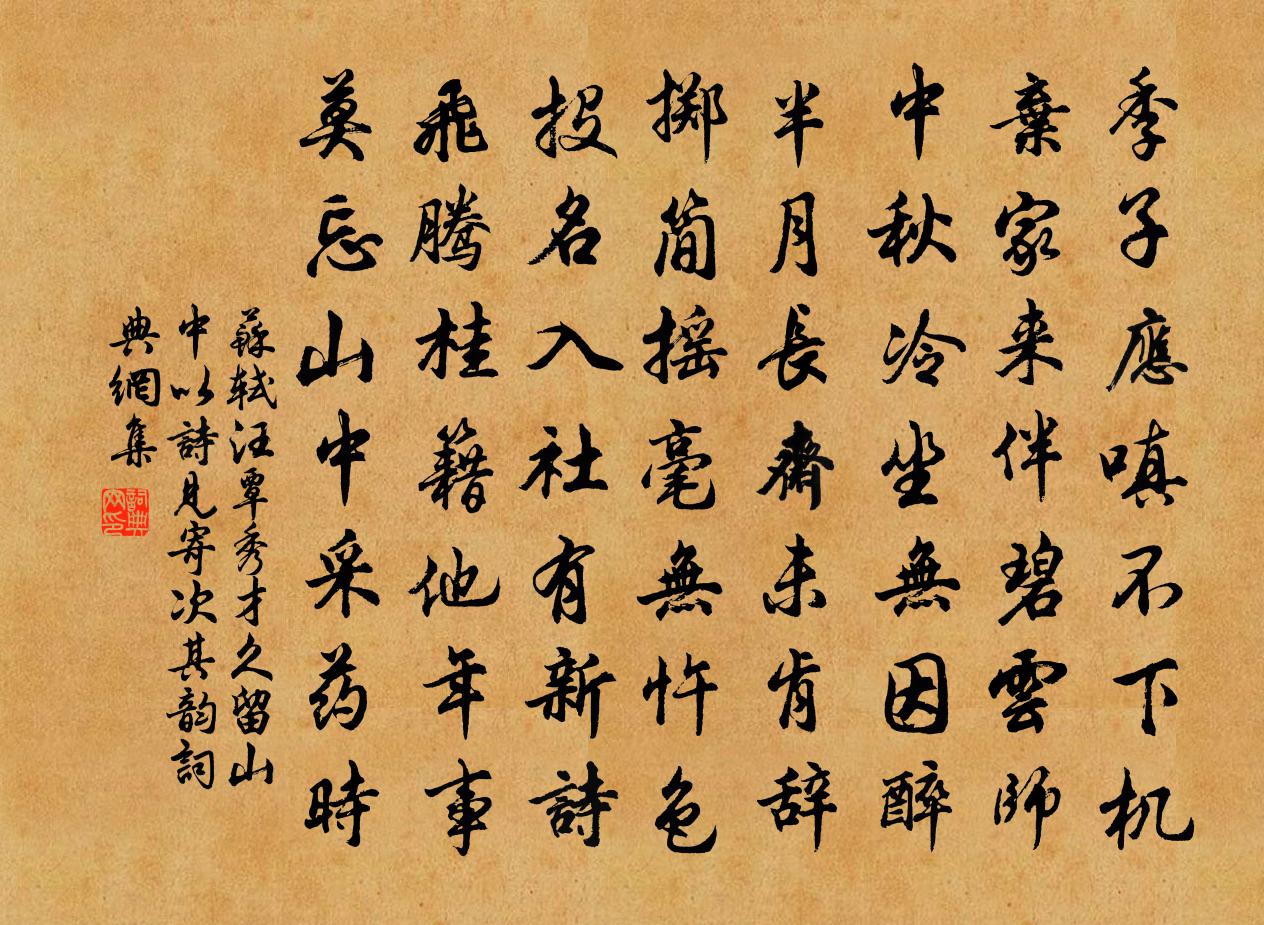 季子應嗔不下机
棄家来伴碧雲師
中秋冷坐無因醉
半月長齋未肯辞
掷简摇毫無忤色
投名入社有新詩
飛騰桂籍他年事
莫忘山中采药時
蘇軾汪覃秀才久留山
中以詩見寄次其韵詞
典網集
詞典
网印